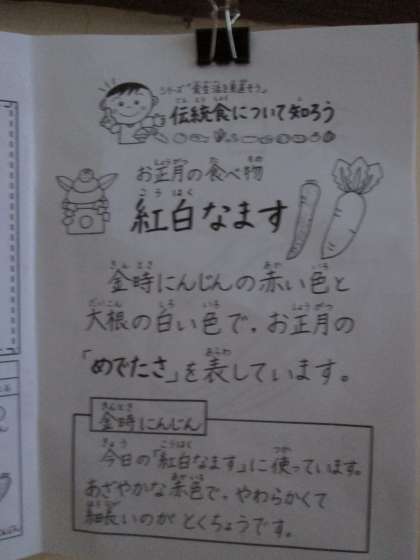 シリーズ「食生活を見直そう」
伝統食について知ろう
お正月の食べ物
紅白なます
金時にんじんの赤い色と
大根の白い色で、お正月の
「めでたさ」を表しています。
金時にんじん
今日の「紅白なます」に使っています。
あざやかな赤色で、やわらかくて
細長いのがとくちょうです。